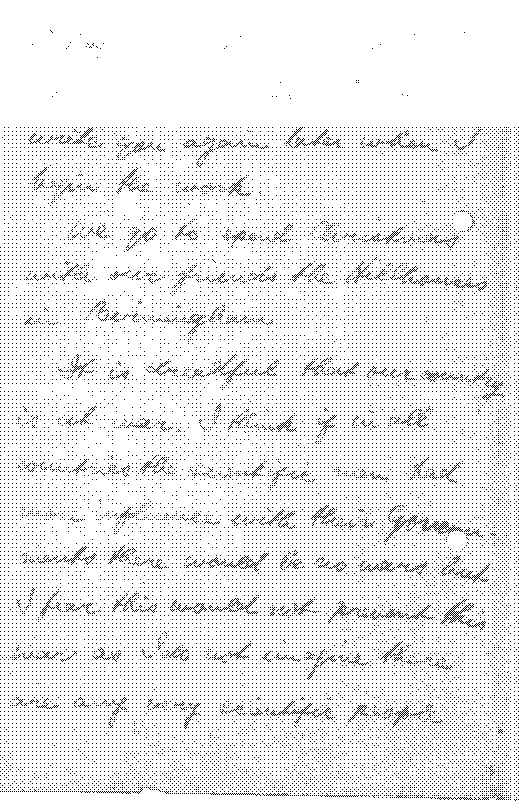 write you again later when I
begin the work.
We go to spend Christmas
with our friends the Hillhouses
in Birmingham.
It is dreadful that our country
is at war. I think if in all
countries the scientific men had
more influence with their Govern-
ments there would be no wars but
I fear this would not prevent this
war as I do not imagine there
are any very scientific people